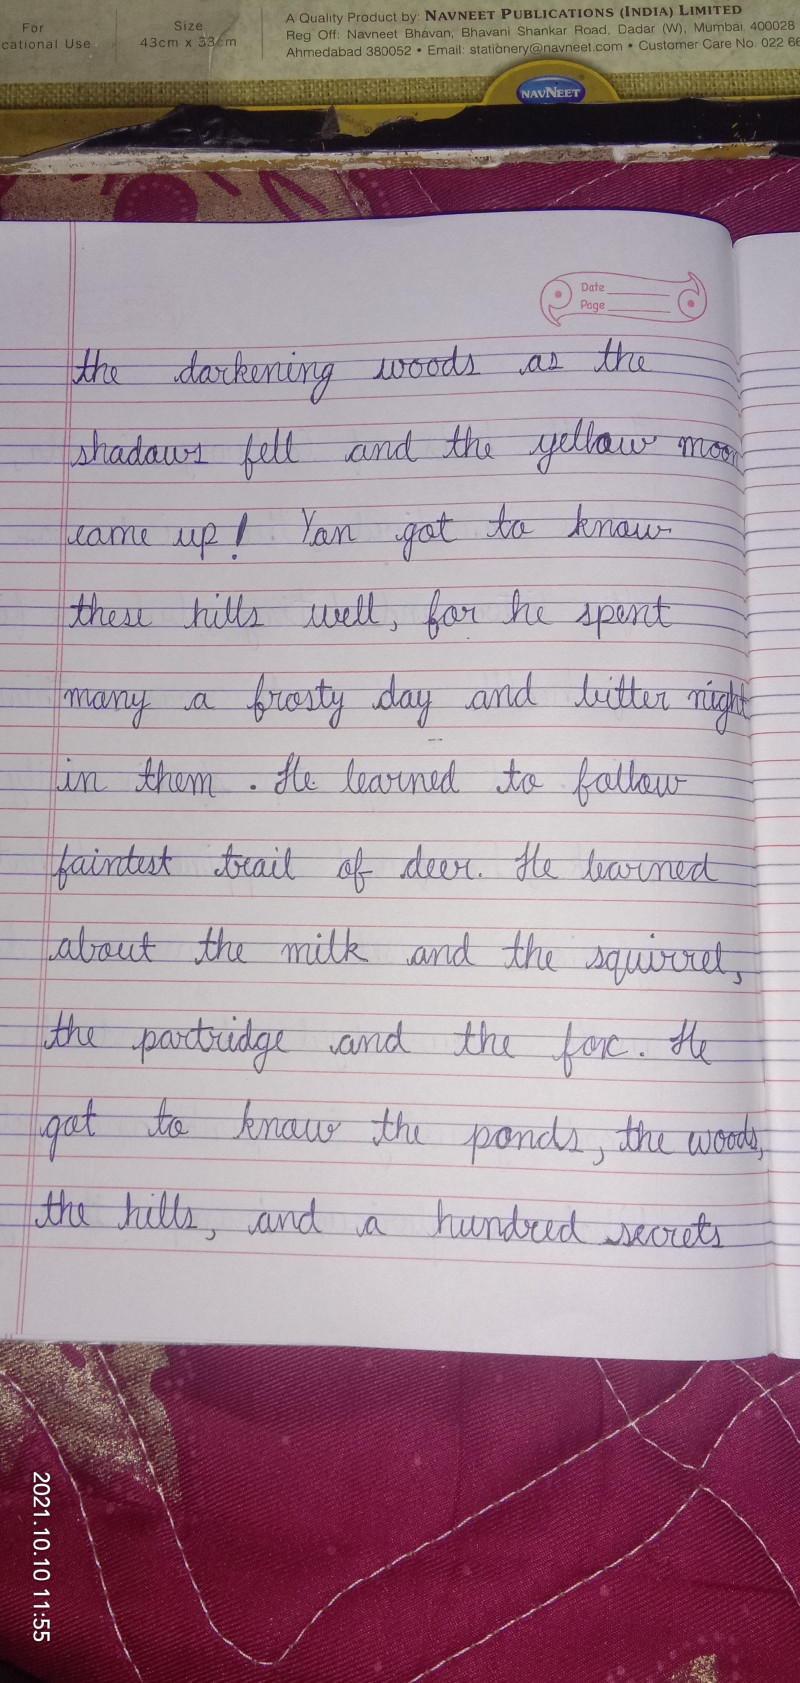 For
cational Use
Size
43cm x 33cm
A Quality Product by: NAVNEET PUBLICATIONS (INDIA) LIMITED
Reg Off: Navneet Bhavan, Bhavani Shankar Road, Dadar (W), Mumbai 400028
Ahmedabad 380052 • Email: stationery@navneet.com • Customer Care No. 022 66
NAVNEET
Date
Page
the darkening woods as the
shadows fell and the yellow moon
came up! Yan got to know
these hills well, for he spent
many a frosty day and bitter night
in them. He learned to follow
faintest trail of deer. He learned
about the milk and the squirrel,
the partridge and the fox. He
got to know the ponds, the woods,
the hills, and a hundred secrets
2021.10.10 11:55